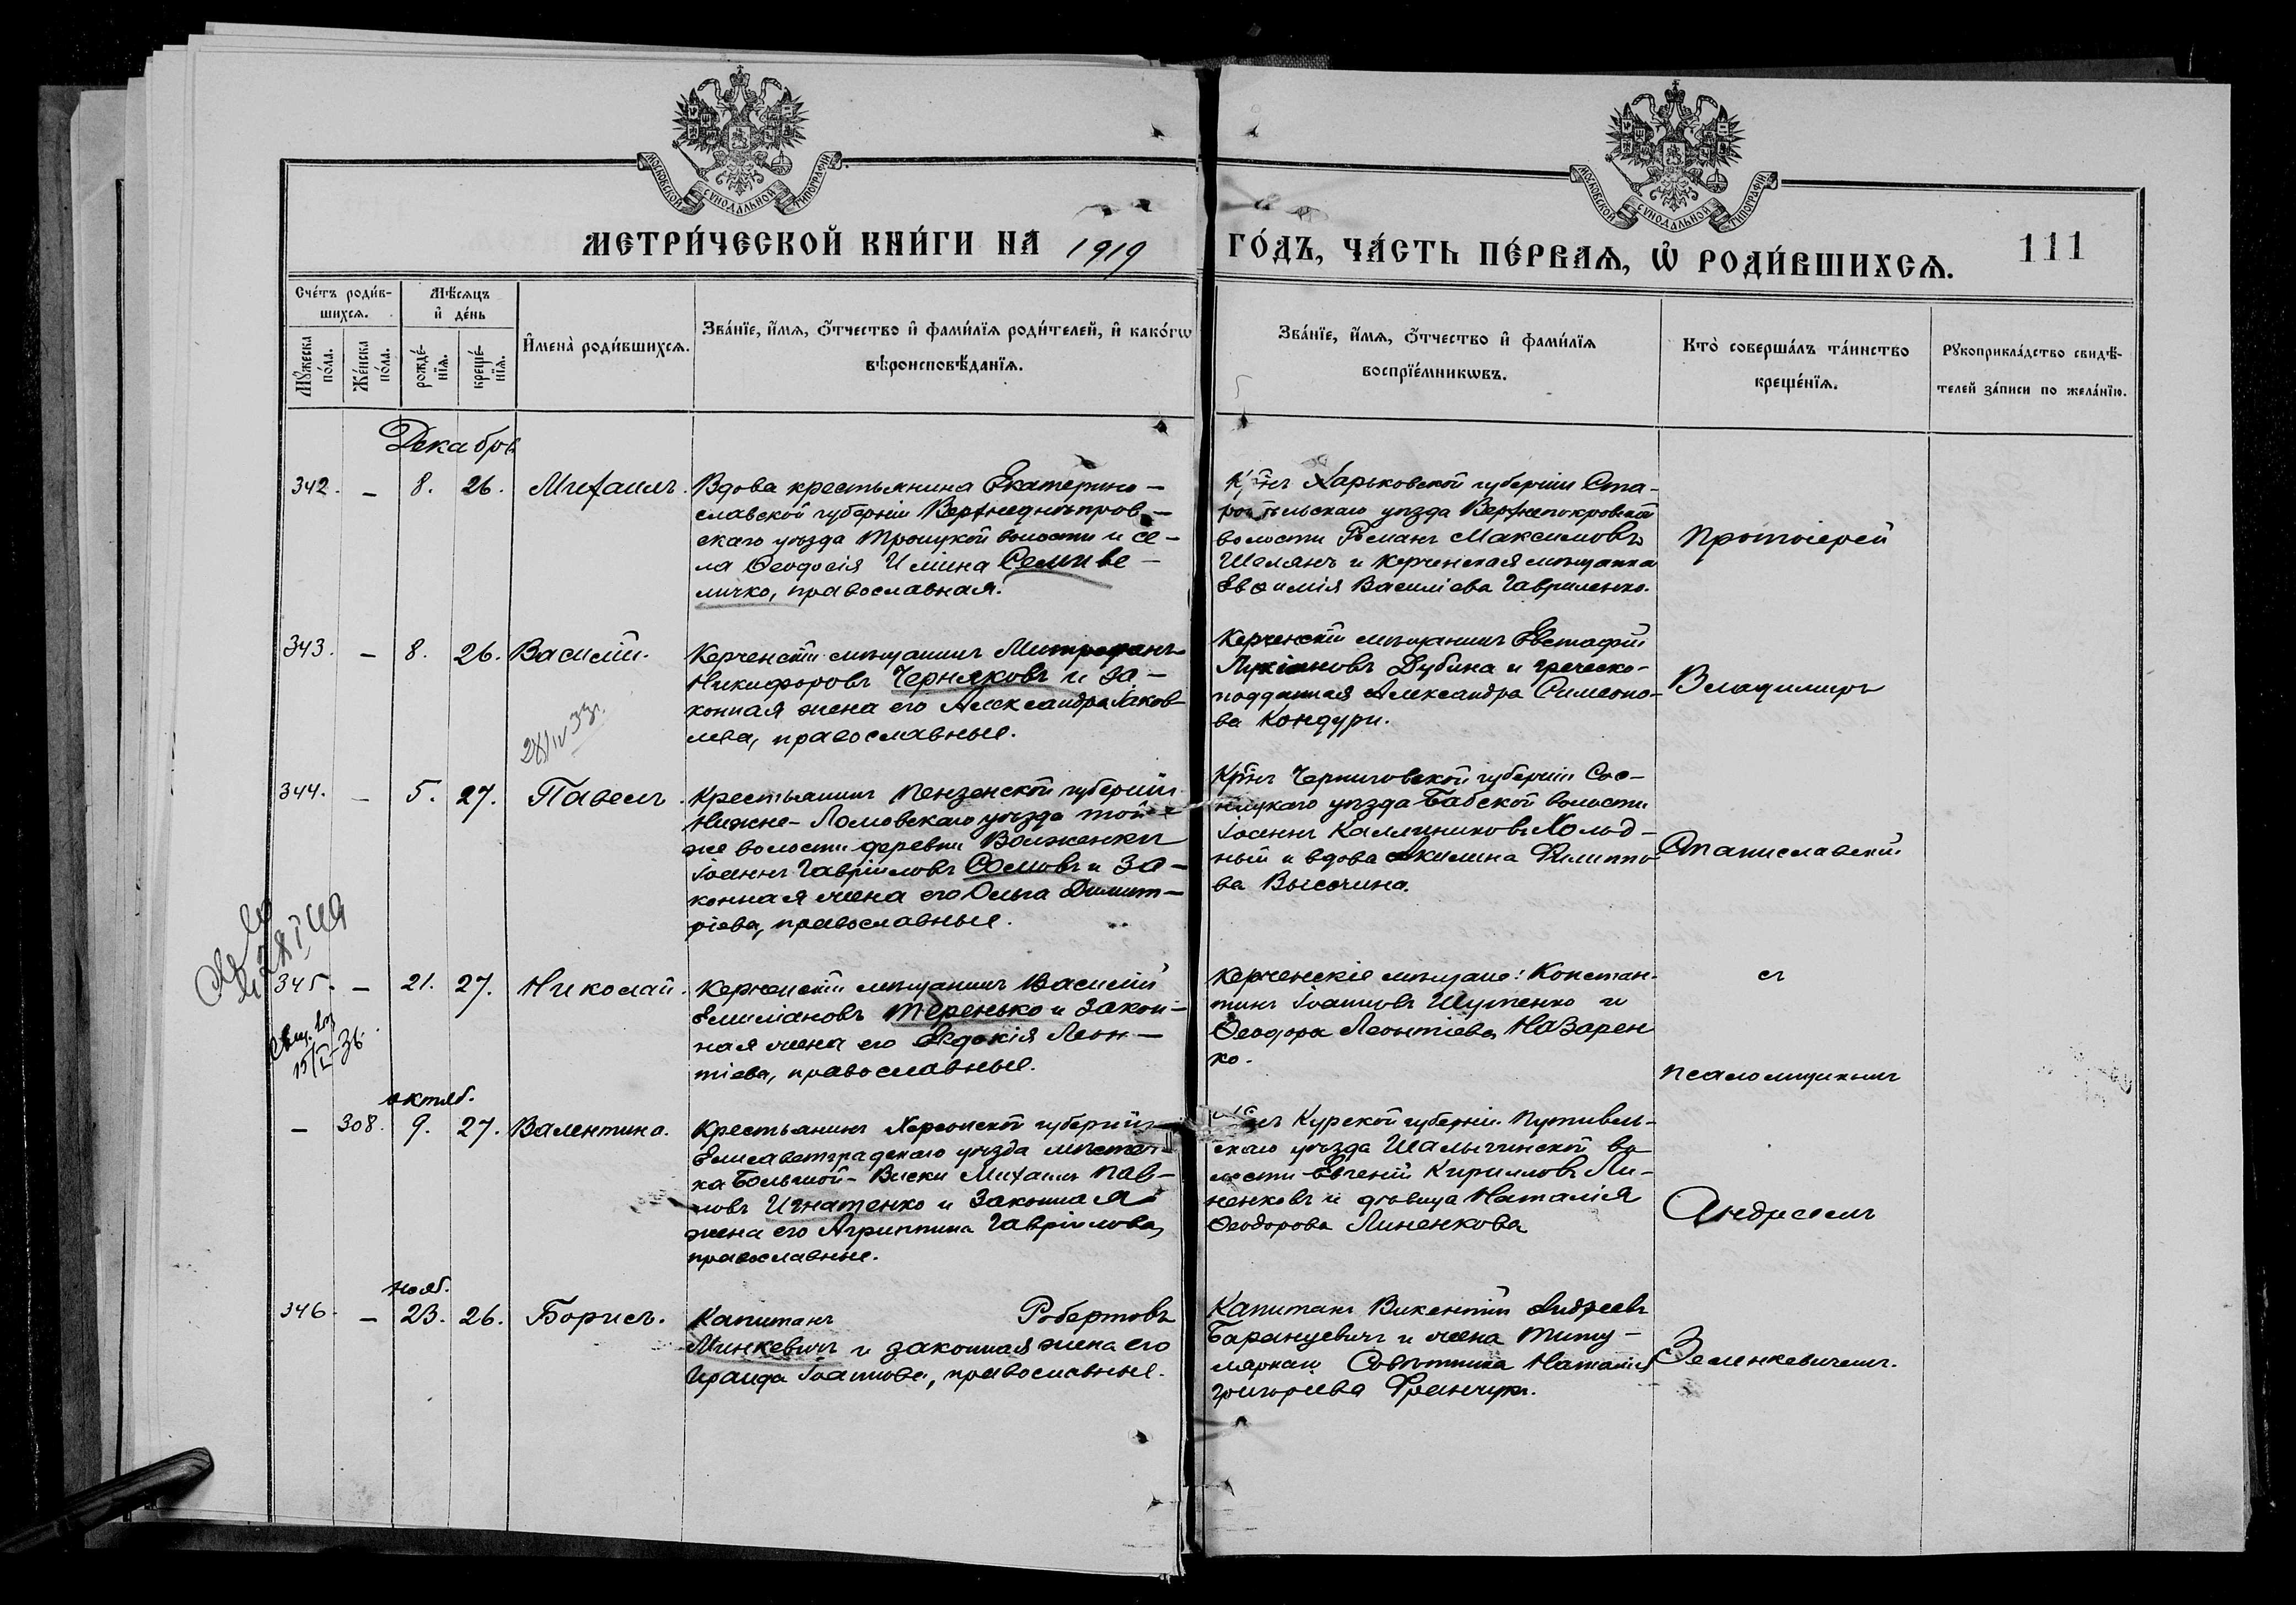 МОСКОВСКОЙ СУНОДАЛЬНОЙ ТИПОГРАФІИ
МОСКОВСКОЙ СУНОДАЛЬНОЙ ТИПОГРАФІИ
МЕТРИ́ЧЕСКОЙ КНИ́ГИ НА 1919
ГО́ДЪ, ЧА́СТЬ ПЕ́РВАѦ, Ѡ҆ РОДИ́ВШИХСѦ.
111
Сче́тъ роди́в-
шихсѧ.
Мꙋ́жеска по́ла.
Же́нска по́ла.
Мѣ́сѧцъ
и҆ де́нь
рожде́-
нїѧ.
креще́-
нїѧ.
И҆мена̀ роди́вшихсѧ.
Зва́нїе, и҆́мѧ, ѻ҆́тчество и҆ фами́лїѧ роди́телей, и҆ како́гѡ
вѣроисповѣ́данїѧ.
Зва́нїе, и҆́мѧ, ѻ҆́тчество и҆ фами́лїѧ
воспрїе́мникѡвъ.
Кто̀ соверша́лъ та́инство
креще́нїѧ.
Рꙋкоприкла́дство свидѣ́-
телей за́писи по жела́нїю.
Декабрь
342. – 8. 26. Михаилъ.
Вдова крестьянина Екатерино-
славской губерніи Верхнеднѣпров-
скаго уѣзда Троицкой волости и се-
ла Ѳеодосія Ильина Семиве-
личко, православная.
Кр-нъ Харьковской губерніи Ста-
робѣльскаго уѣзда Верхнепокровской
волости Романъ Максимовъ
Шелянъ и керченская мѣщанка
Евѳимія Василіева Гавриленко.
343. – 8. 26. Василій.
Керченскій мѣщанинъ Митрофанъ
Никифоровъ Черняковъ и за-
конная жена его Александра Іаков-
лева, православные.
Керченскій мѣщанинъ Евстафій
Лукіановъ Дубина и греческо-
подданная Александра Симеоно-
ва Кондури.
344. – 5. 27. Павелъ.
Крестьянинъ Пензенской губерніи
Нижне-Ломовскаго уѣзда той
же волости деревни Волженки
Іоаннъ Гавріиловъ Сомовъ и за-
конная жена его Ольга Димит-
ріева, православные.
Кр-нъ Черниговской губерніи Сос-
ницкаго уѣзда Бабской волости
Іоаннъ Каллиниковъ Холод-
ный и вдова Акилина Филиппо-
ва Высочина.
345. – 21. 27. Николай.
Керченскій мѣщанинъ Василій
Емиліановъ Теренько и закон-
ная жена его Евдокія Леон-
тіева, православные.
Керченскіе мѣщане: Констан-
тинъ Іоанновъ Шутенко и
Ѳеодора Леонтіева Назарен
ко.
октяб.
– 308. 9. 27. Валентина.
Крестьянинъ Херсонской губерніи
Елисаветградскаго уѣзда мѣстеч-
ка Большой-Виски Михаилъ Пав-
ловъ Игнатенко и законная
жена его Агриппина Гавріилова,
православные.
Курской губерніи Путивль-
скаго уѣзда Шалыгинской во
лости Евгеній Кирилловъ Ли-
ненковъ и дѣвица Наталія
Ѳеодорова Линенкова
нояб.
346. – 23. 26. Борисъ.
Капитанъ Робертовъ
Минкевичъ и законная жена его
Ираида Іоаннова, православные.
Капитанъ Викентій Андреевъ
Баранцевичъ и жена титу-
лярнаго Совѣтника Наталія
Григоріева Франчукъ.
Протоіерей
Владимиръ
Станиславскій
съ
псаломщикомъ
Андреемъ
Зелинкевичемъ.